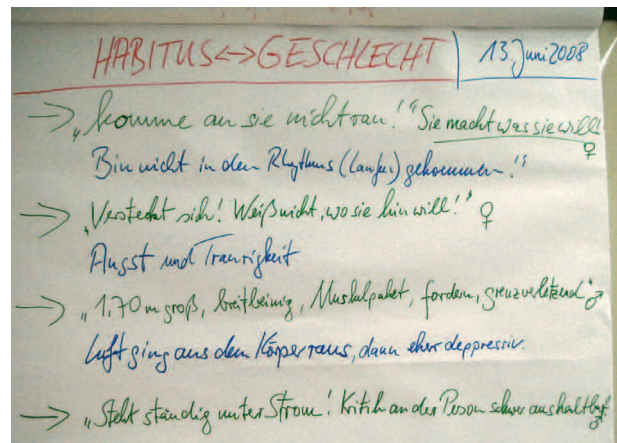 HABITUS<->GESCHLECHT | 13. Juni 2008
-> „komme an sie nicht ran!“ Sie macht was sie will! ♀
Bin nicht in den Rhythmus (Laufen) gekommen!“
-> „Versteckt sich! Weiß nicht, wo sie hin will!“ ♀
Angst und Traurigkeit
-> „1,70 m groß, breitbeinig, Muskelpaket, fordern, grenzverletzend“ ♂
Luft ging aus dem Körper raus, dann eher deppressiv.
-> „Steht ständig unter Strom! Kritik an der Person schwer aushaltbar“ ♂